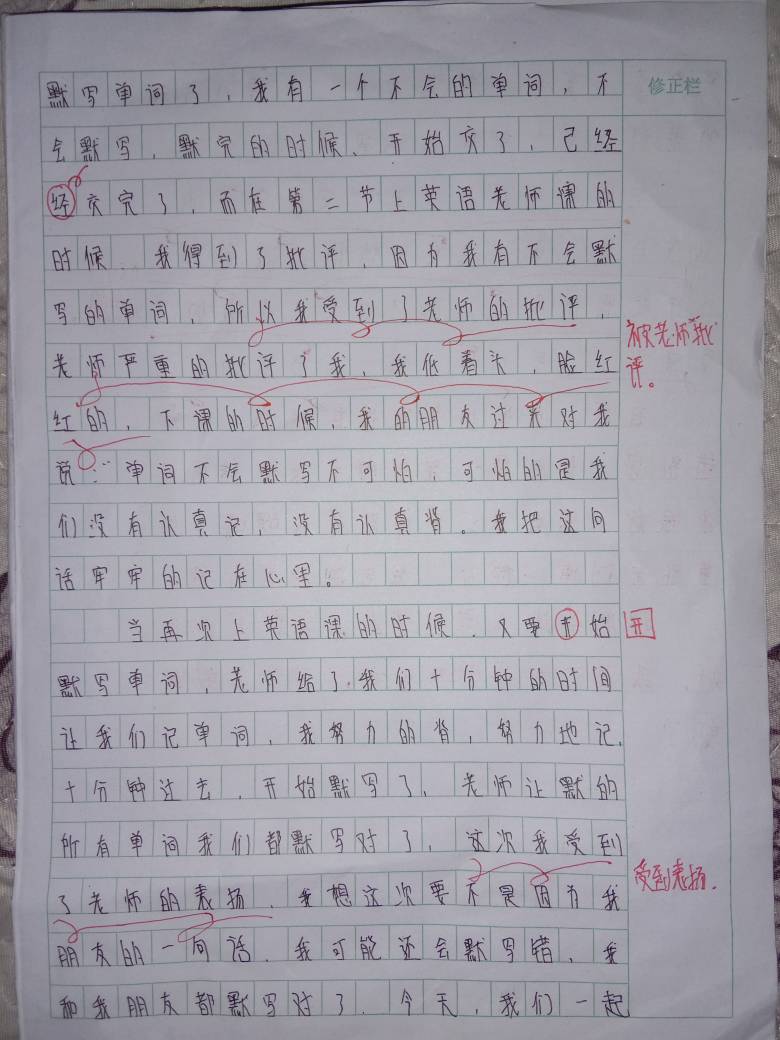 修正栏
默写单词了，我有一个不会的单词，不
会默写，默完的时候、开始交了，已经
经交完了，而在第二节上英语老师课的
时候、我得到了批评、因为我有不会默
写的单词，所以我受到了老师的批评，
被老师批
老师严重的批评了我，我低着头，脸红
评。
红的，下课的时候，我的朋友过来对我
说：“单词不会默写不可怕，可怕的是我
们没有认真记，没有认真背。我把这句
话牢牢的记在心里。
当再次上英语课的时候，又要开始
开
默写单词，老师给了我们十分钟的时间
让我们记单词，我努力的背，努力地记，
十分钟过去，开始默写了，老师让默的
所有单词我们都默写对了，这次我受到
受到表扬.
了老师的表扬，我想这次要不是因为我
朋友的一句话，我可能还会默写错，我
和我朋友都默写对了，今天，我们一起